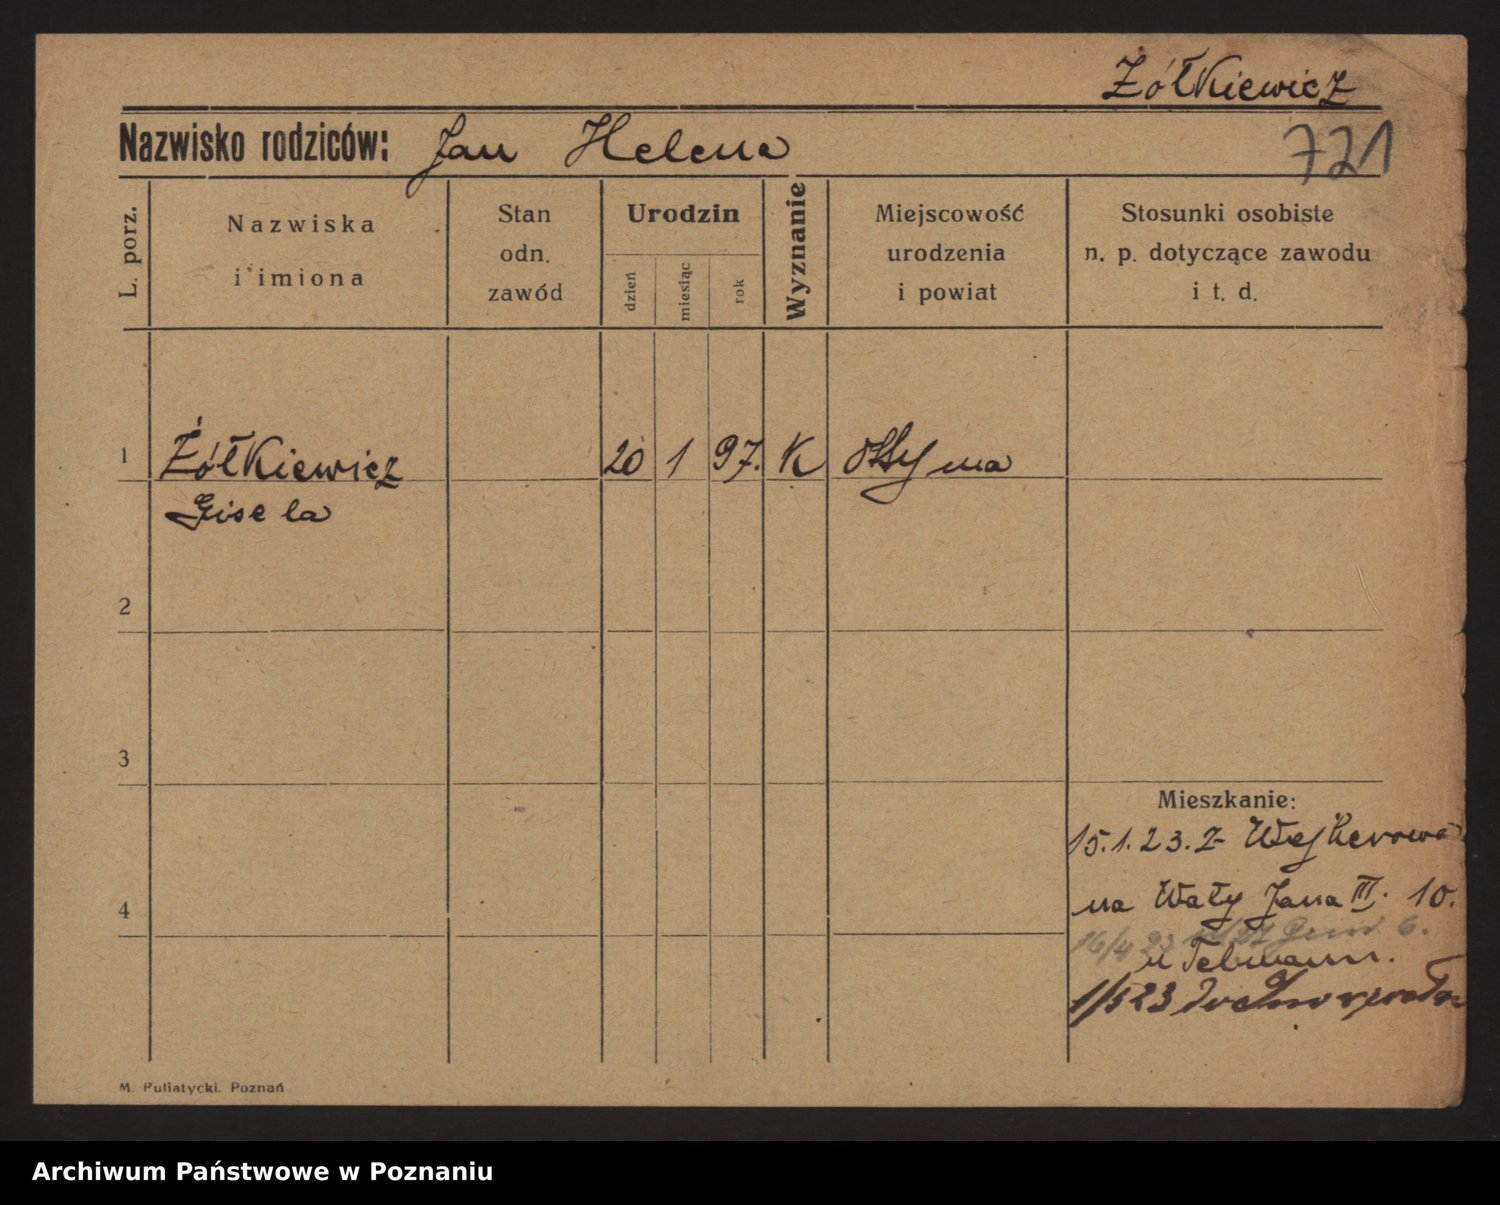 Żółkiewicz
Nazwisko rodziców: Jan Helena
721
L. porz.
Nazwiska
i imiona
Stan
odn.
zawód
Urodzin
dzień
miesiąc
rok
Wyznanie
Miejscowość
urodzenia
i powiat
Stosunki osobiste
n. p. dotyczące zawodu
i t. d.
1 Żółkiewicz 20 1 97. K Ottyma
Gisela
2
3
4
Mieszkanie:
15.1.23. z Wejherowa
na Wały Jana III. 10.
16/4 23 6.
u
1/5 23
M. Putiatycki. Poznań
Archiwum Państwowe w Poznaniu